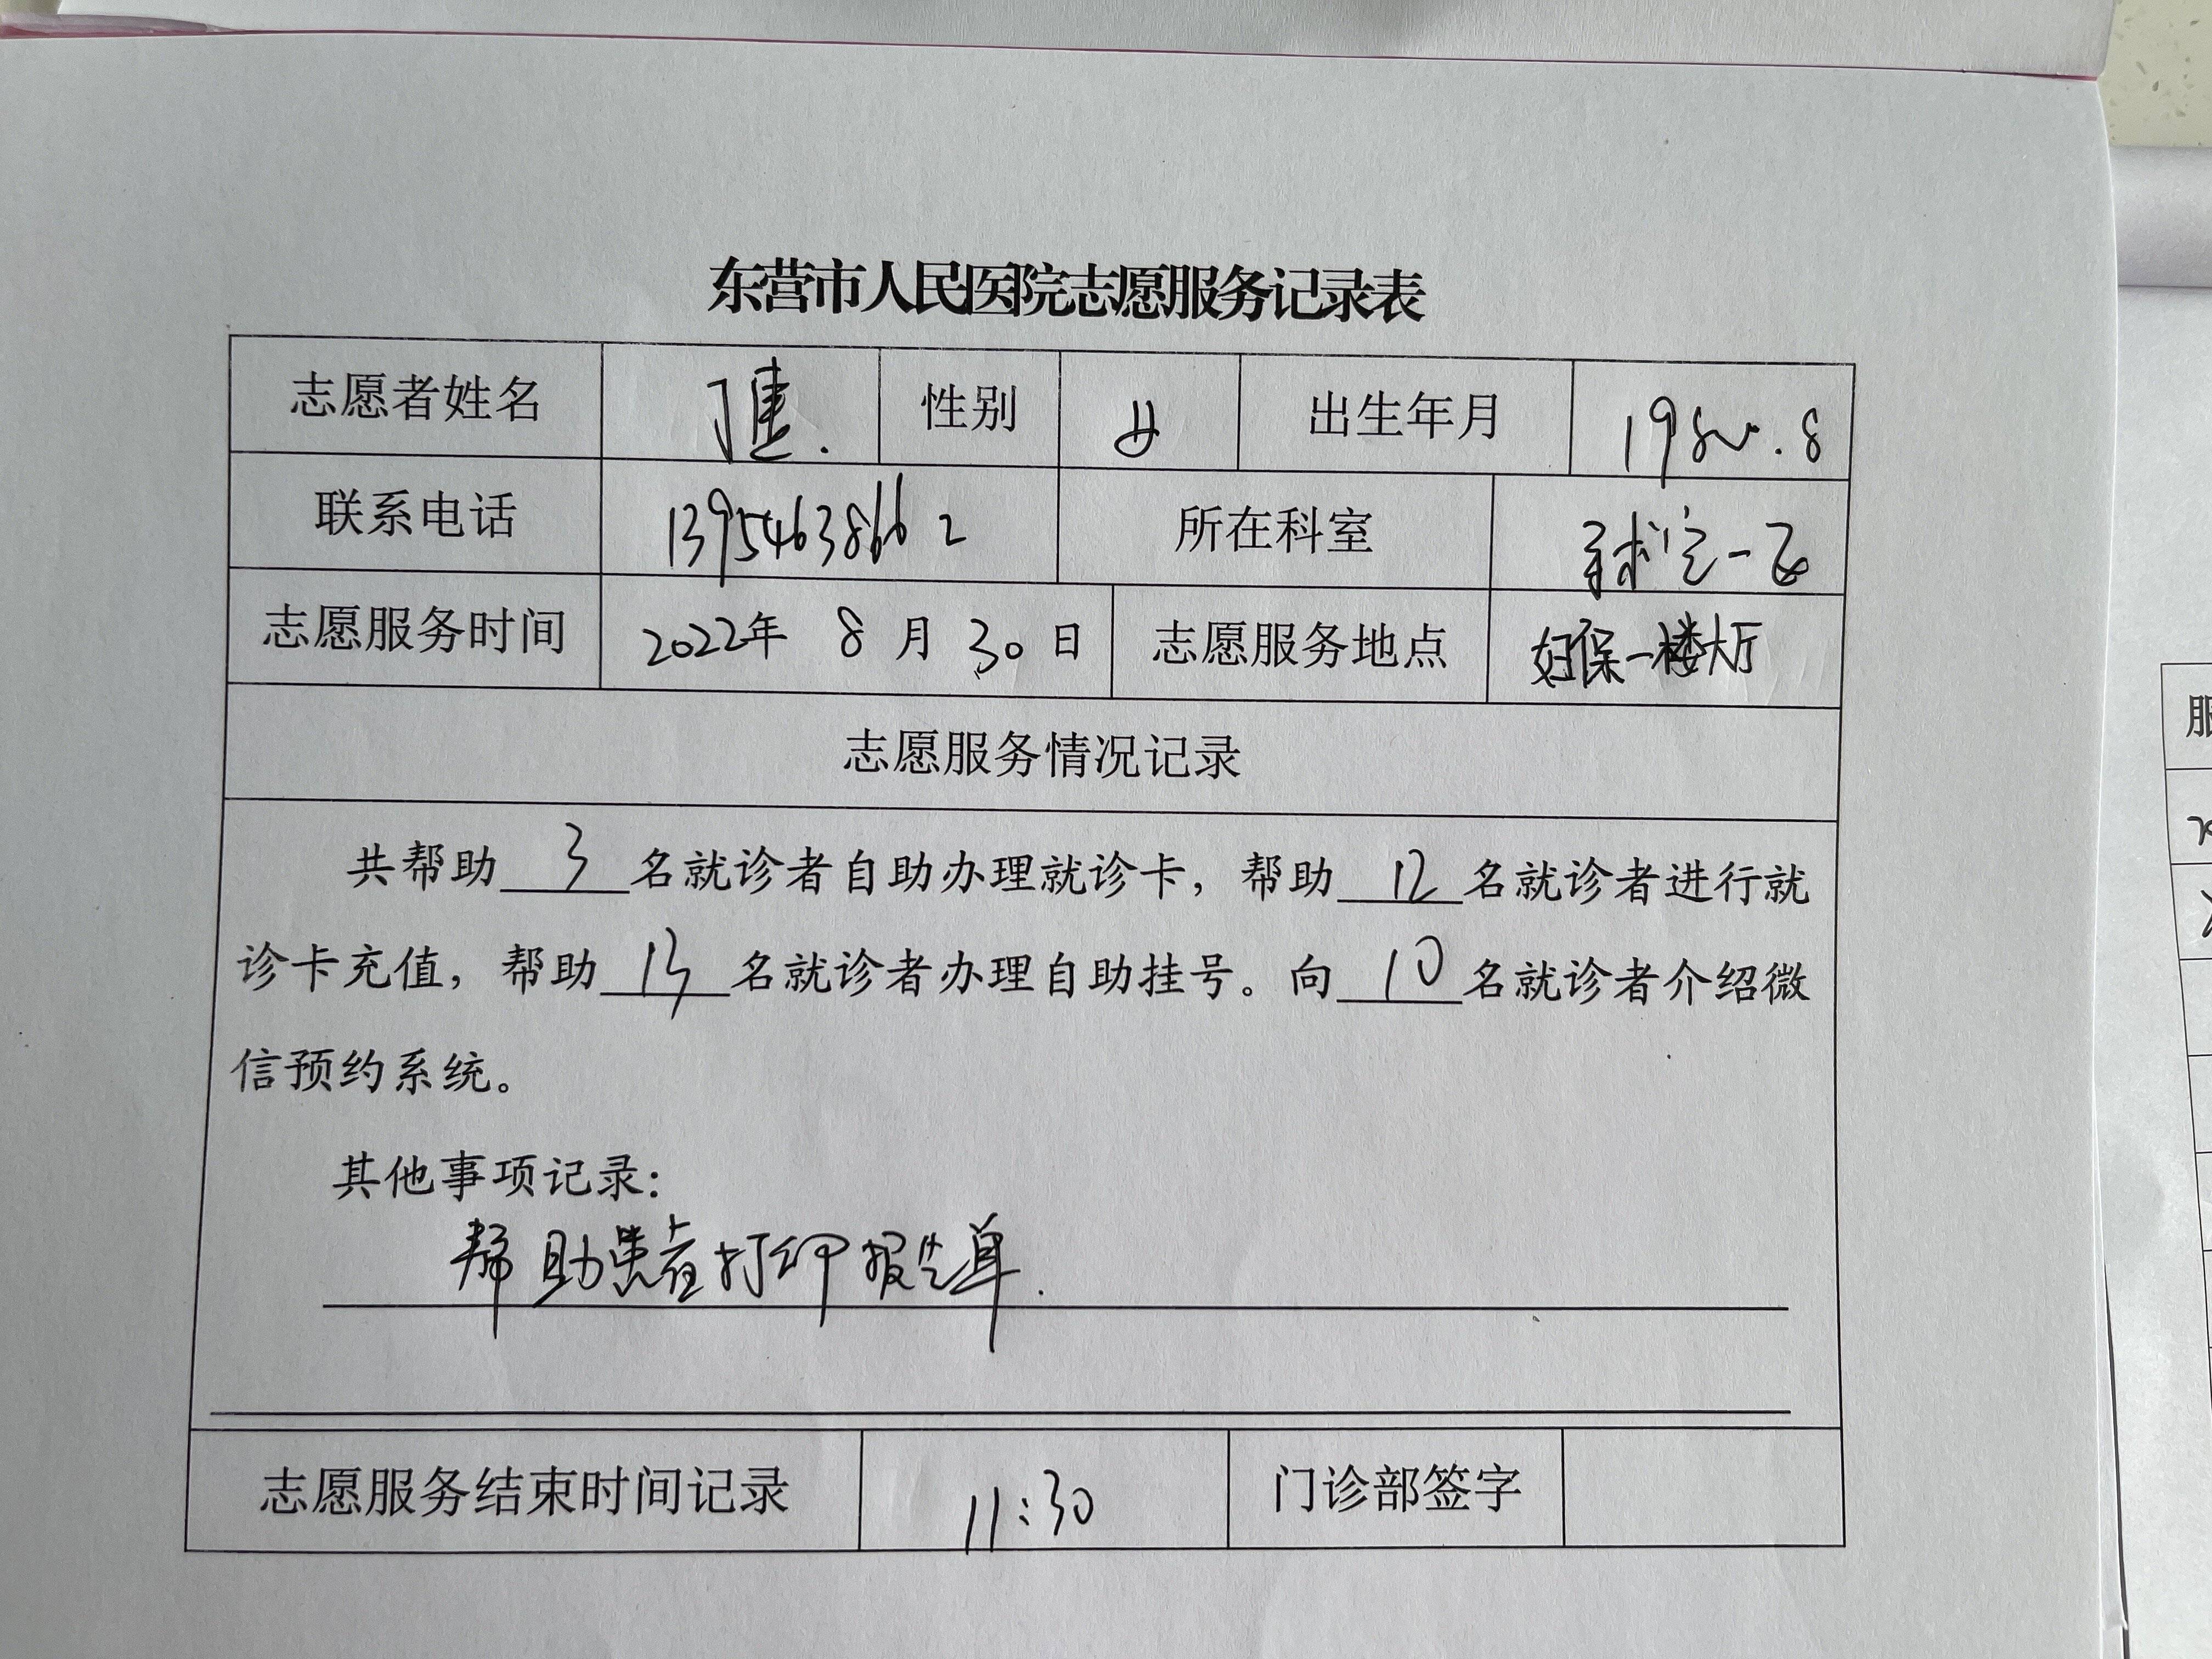 东营市人民医院志愿服务记录表
志愿者姓名 性别 女 出生年月
联系电话 13954638662 所在科室
志愿服务时间 2022年 8 月 30 日 志愿服务地点 妇保一楼大厅
志愿服务情况记录
共帮助 3 名就诊者自助办理就诊卡，帮助 12 名就诊者进行就
诊卡充值，帮助 13 名就诊者办理自助挂号。向 10 名就诊者介绍微
信预约系统。
其他事项记录：
帮助患者打印报告单.
志愿服务结束时间记录 11:30 门诊部签字
服